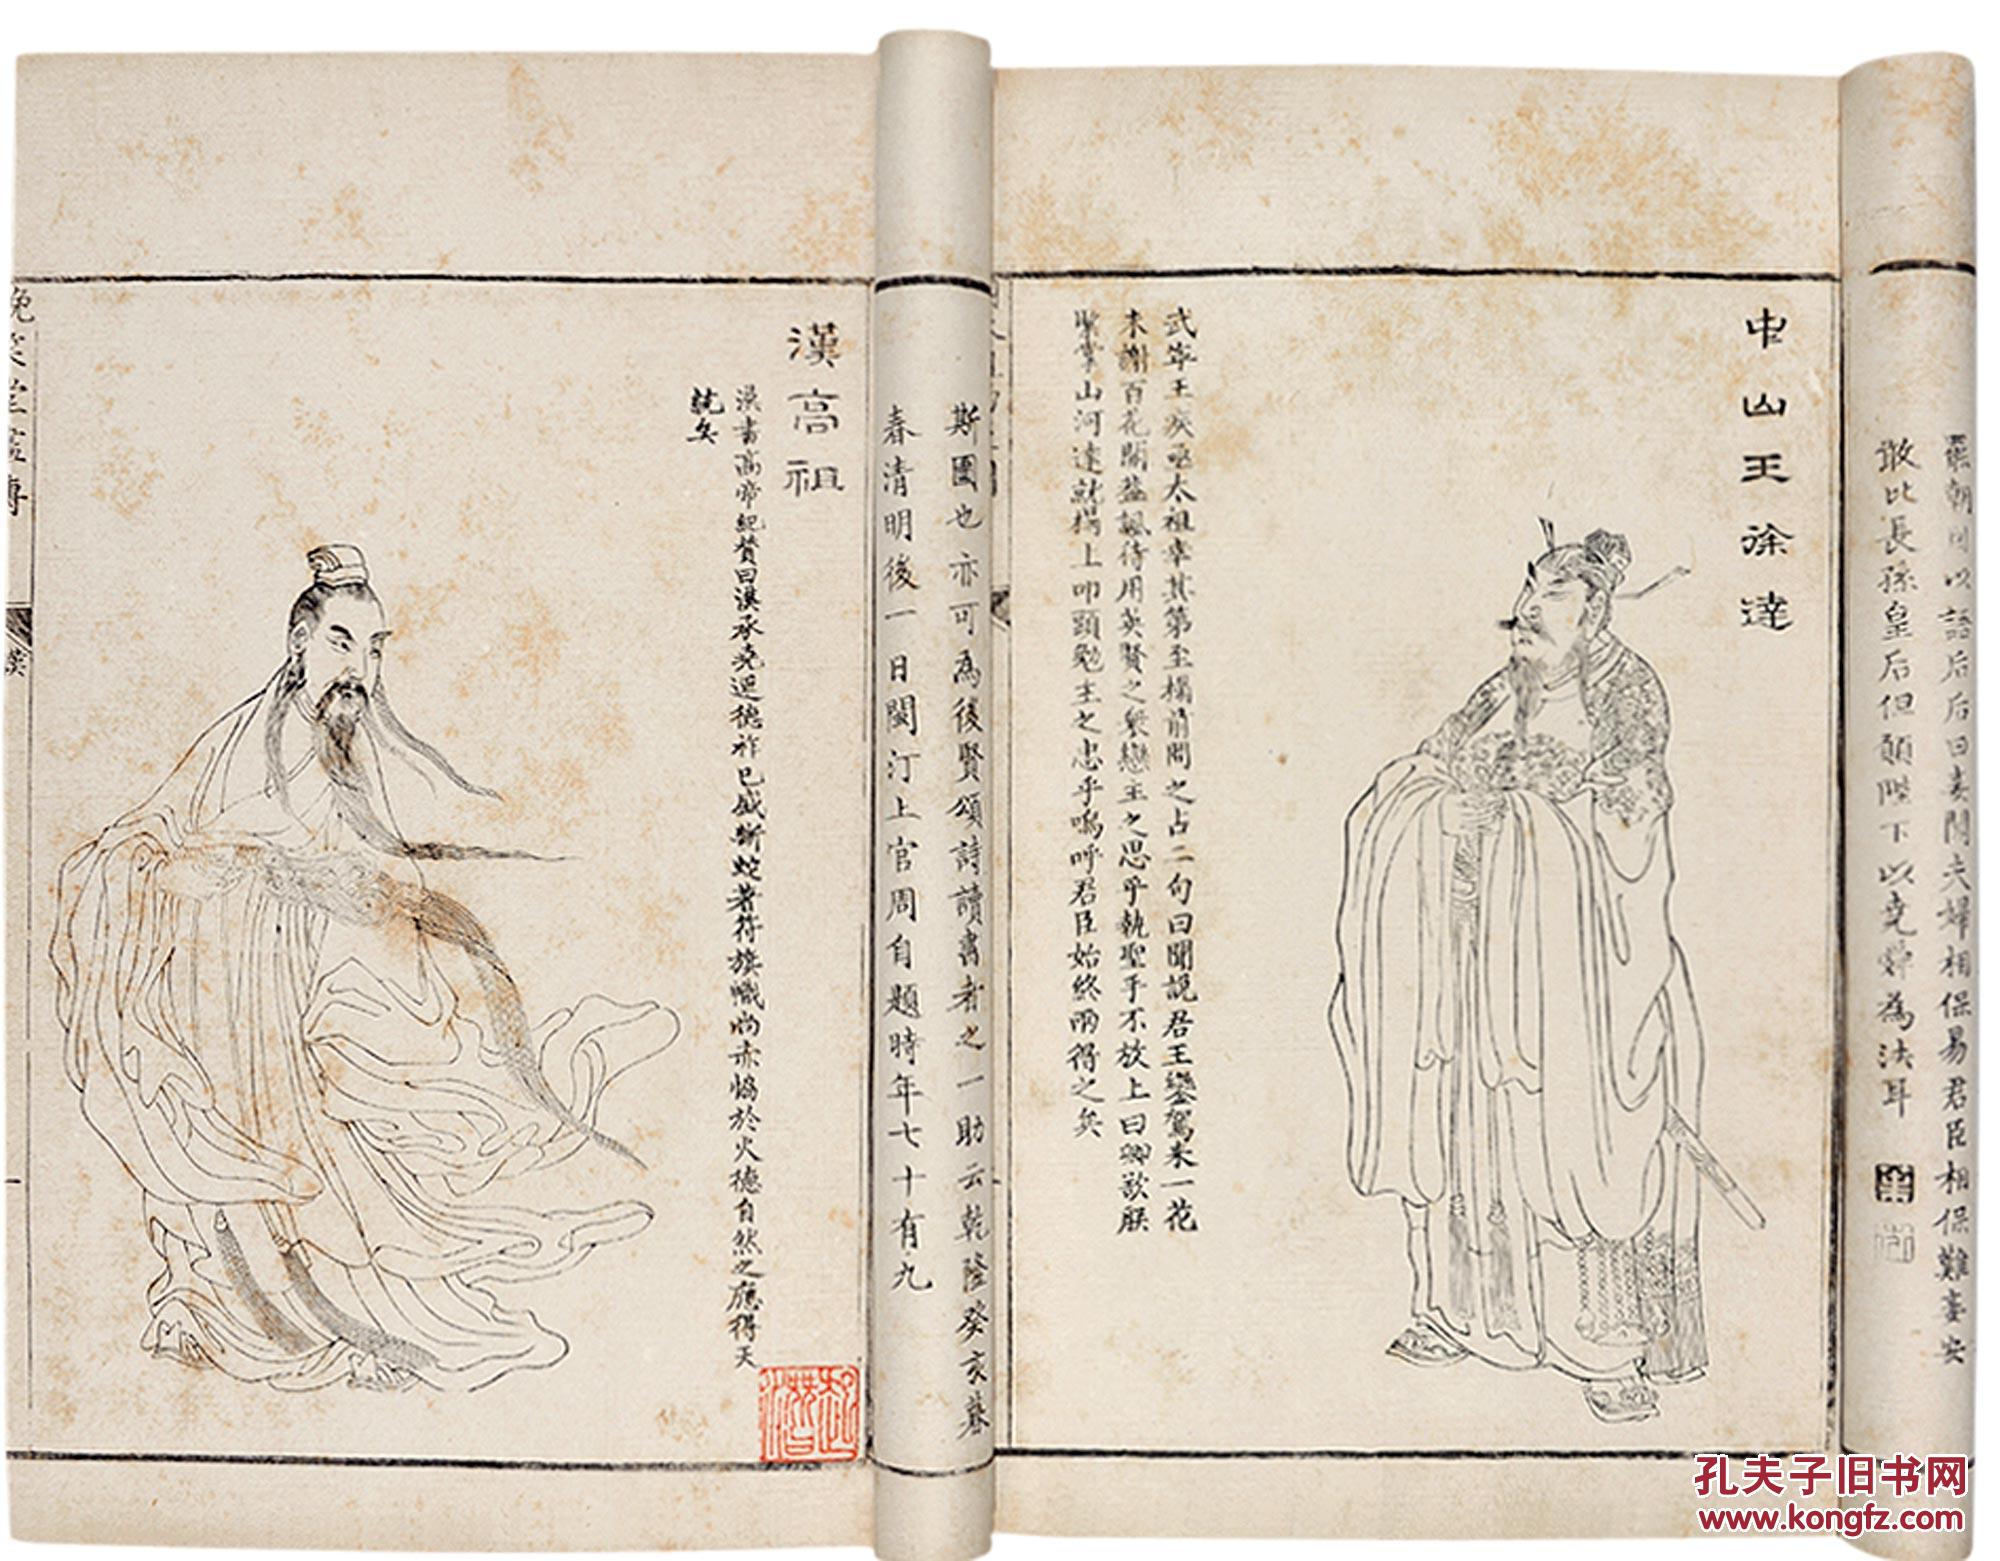 罷朝因以語后后曰妾聞夫婦相保易君臣相保難妾安
敢比長孫皇后但願陛下以堯舜為法耳
中山王徐達
武寧王疾亟太祖幸其第至榻前問之占二句曰聞說君王鑾駕來一花
未謝百花開蓋諷待用英賢之衆戀主之思乎執聖手不放上曰卿欲朕
緊掌山河達就榻上叩頭勉主之忠乎嗚呼君臣始終兩得之矣
斯圖也亦可為後賢頌詩讀書者之一助云乾隆癸亥暮
春清明後一日閩汀上官周自題時年七十有九
漢高祖
漢書高帝紀贊曰漢承堯運德祚已盛斷蛇著符旗幟尚赤協於火德自然之應得天
統矣
晚笑堂畫傳
漢
孔夫子旧书网
www.kongfz.com